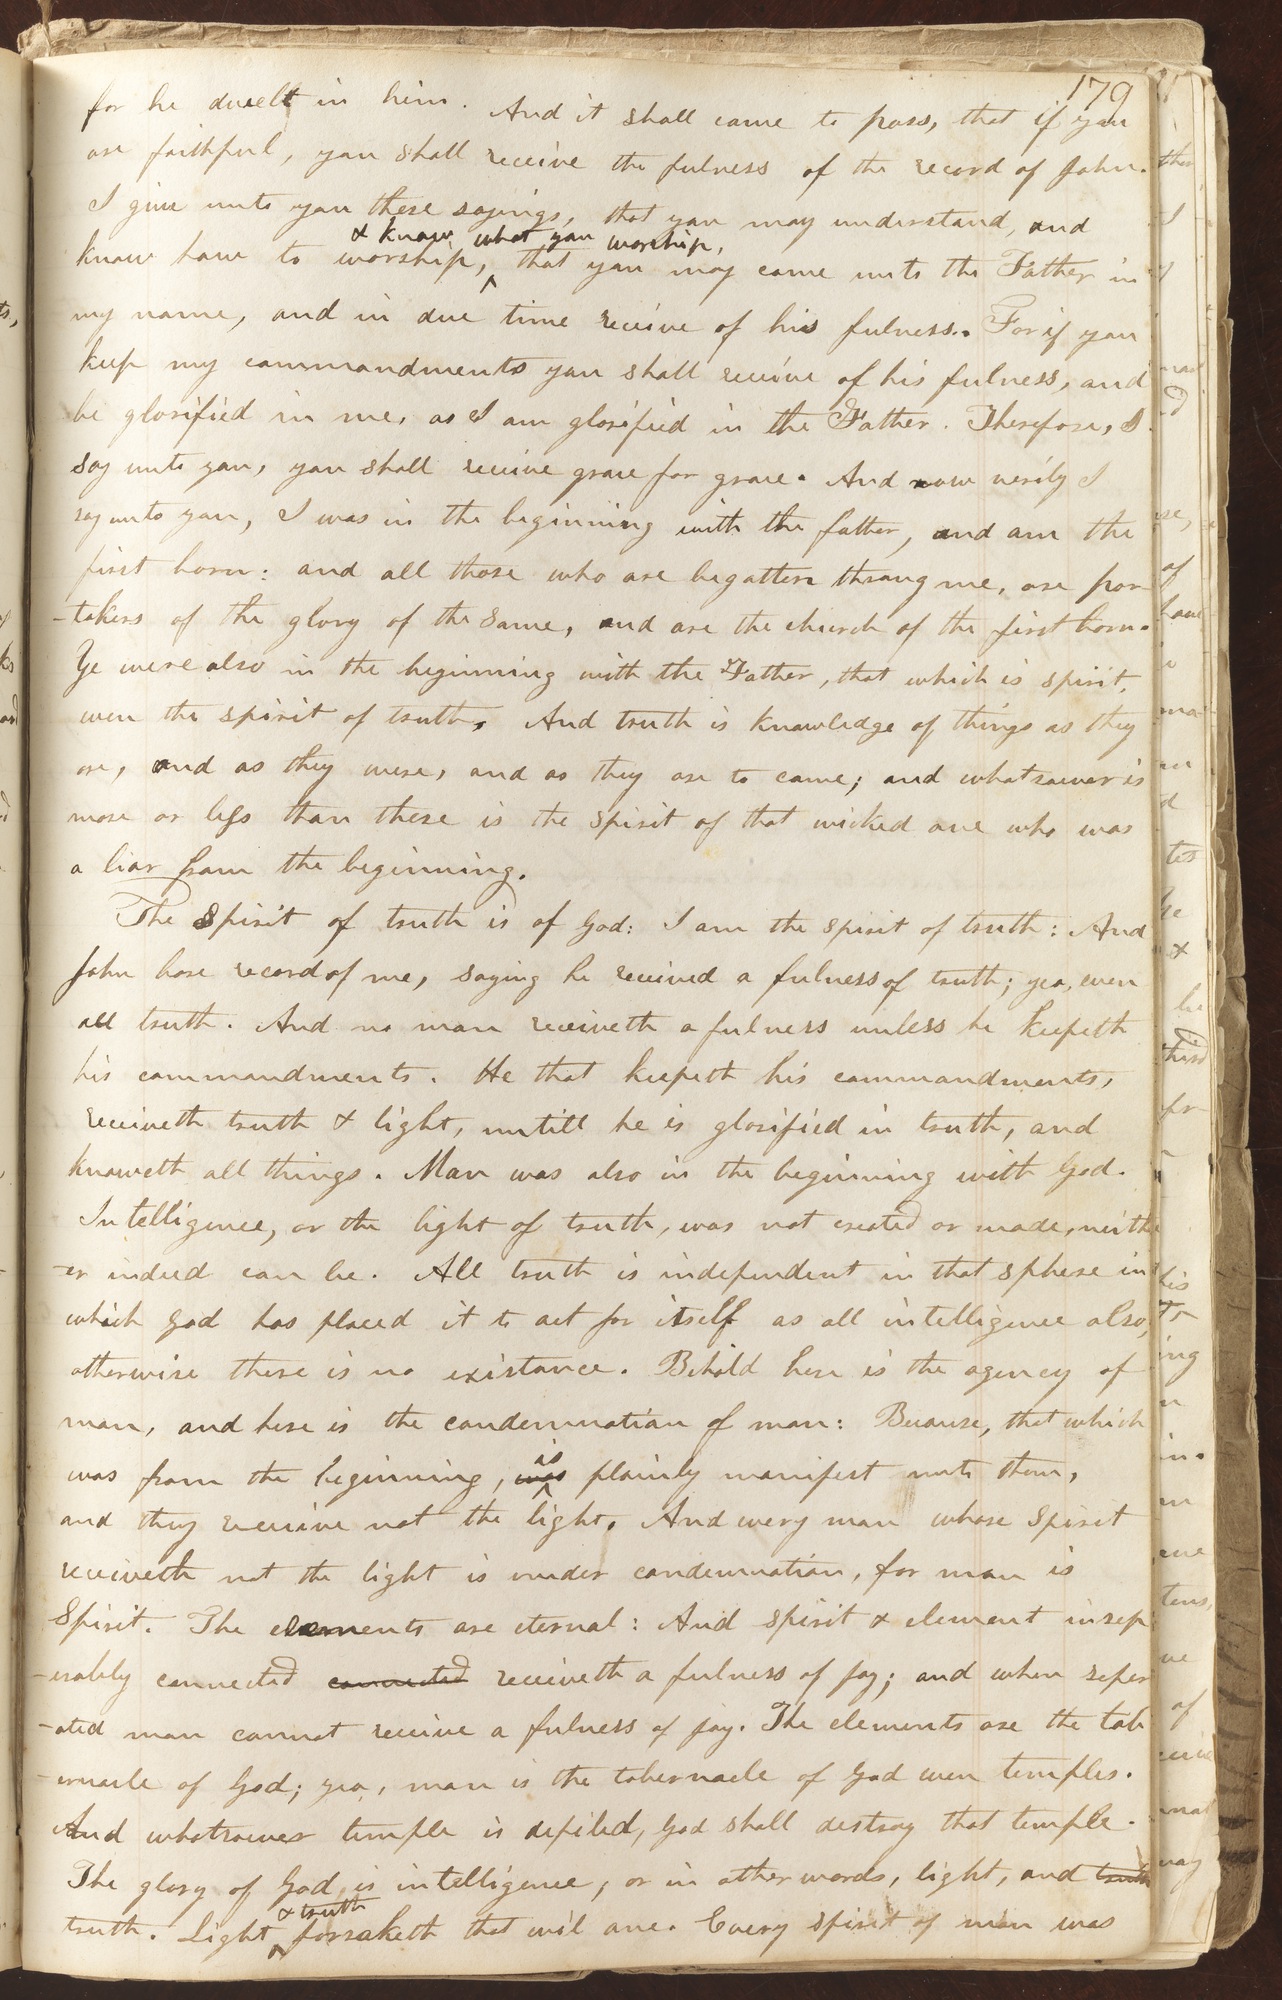 179
for he dwelt in him. And it shall come to pass, that if you
are faithful, you shall receive the fulness of the record of John.
I give unto you these sayings, that you may understand, and
& know what you worship,
know how to worship, ^ that you may come unto the Father in
my name, and in due time receive of his fulness. For if you
keep my commandments you shall receive of his fulness, and
be glorified in me, as I am glorified in the Father. Therefore, I
say unto you, you shall receive grace for grace. And now verily I
say unto you, I was in the beginning with the father, and am the
first born: and all those who are begotten throug me, are par
-takers of the glory of the same, and are the church of the first born.
Ye were also in the beginning with the Father, that which is spirit,
even the spirit of truth, And truth is knowledge of things as they
are, and as they were, and as they are to come; and whatsoever is
more or less than these is the spirit of that wicked one who was
a liar from the beginning.
The spirit of truth is of God: I am the spirit of truth: And
John bore record of me, saying he received a fulness of truth; yea, even
all truth. And no man receiveth a fulness unless he keepeth
his commandments. He that keepeth his commandments,
receiveth truth & light, untill he is glorified in truth, and
knoweth all things. Man was also in the beginning with God.
Intelligence, or the light of truth, was not created or made, neith
-er indeed can be. All truth is independent in that sphere in
which God has placed it to act for itself as all intelligence also,
otherwise there is no existance. Behold here is the agency of
man, and here is the condemnation of man: Because, that which
is
was from the beginning, was ^ plainly manifest unto them,
and they receive not the light. And every man whose spirit
receiveth not the light is under condemnation, for man is
Spirit. The elements are eternal: And spirit & element insep
-erably connected connected receiveth a fulness of joy; and when seper
-ated man cannot receive a fulness of joy. The elements are the tab
-ernacle of God; yea, man is the tabernacle of God even temples.
And whatsoever temple is defiled, God shall destroy that temple.
The glory of God is intelligence, or in other words, light, and truth
& truth
truth. Light ^ forsaketh that evil one. Every spirit of man was